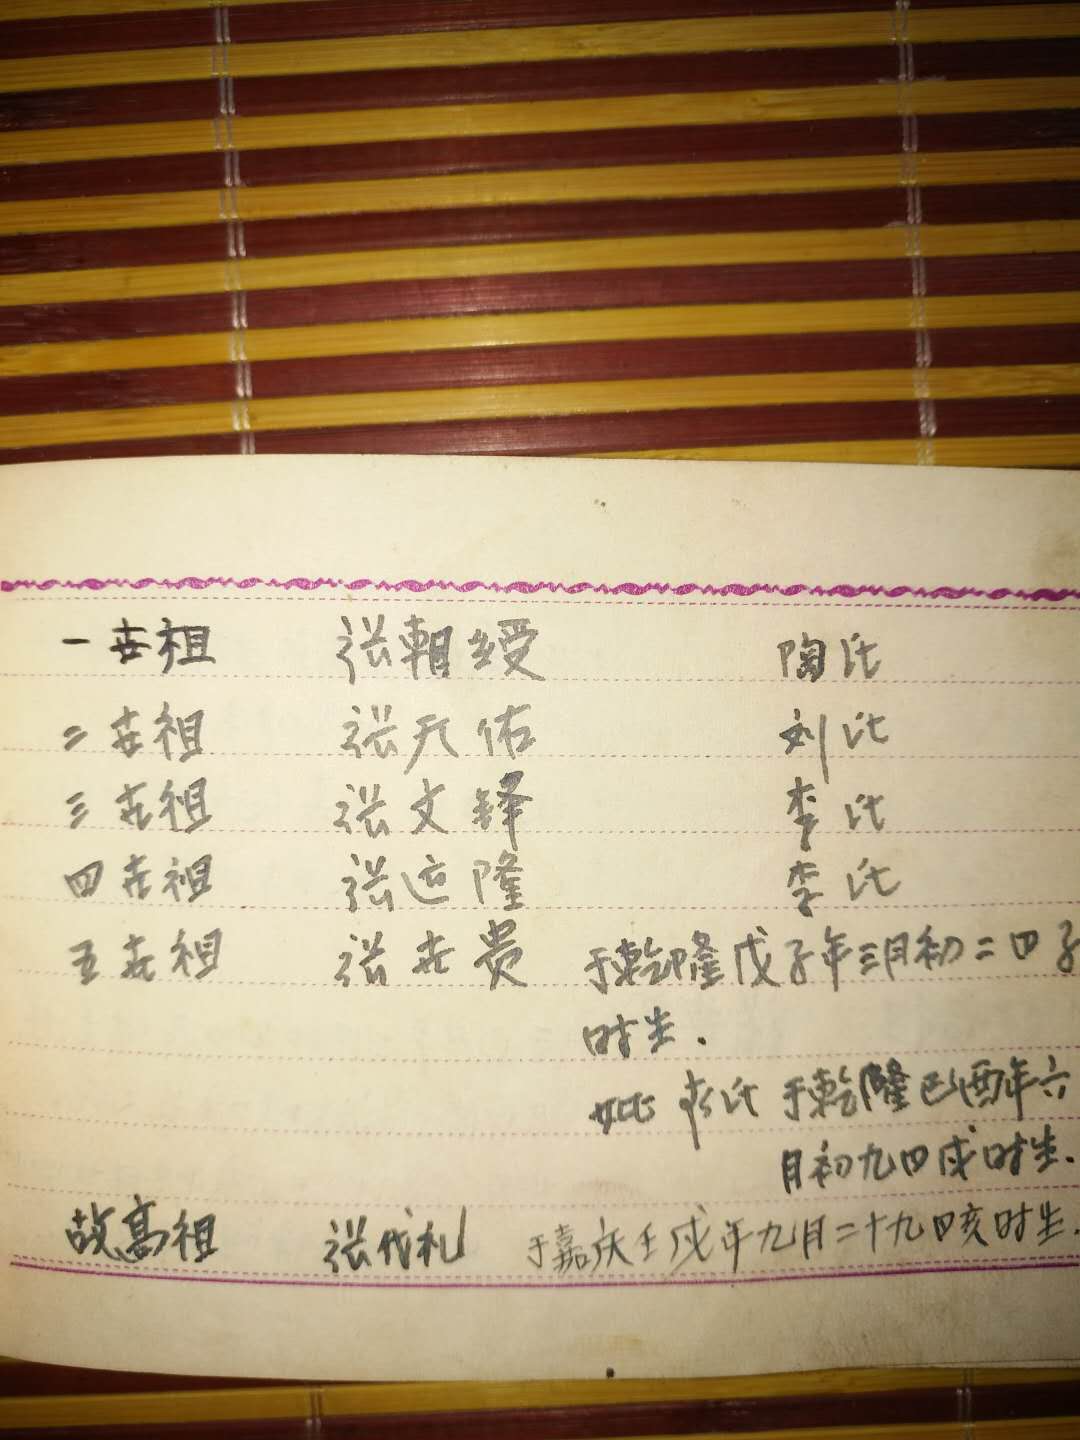 一世祖 张朝绶 陶氏
二世祖 张天佑 刘氏
三世祖 张文铎 李氏
四世祖 张运隆 李氏
五世祖 张世贵 于乾隆戊子年三月初二日子
时生.
妣 李氏 于乾隆己酉年六
月初九日戌时生.
故高祖 张代礼 于嘉庆壬戌年九月二十九日亥时生.